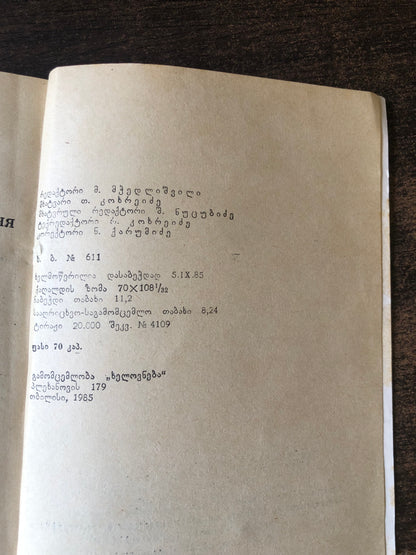 ИЯ
რედაქტორი მ. მჭედლიშვილი
მხატვარი თ. კოხრეიძე
მხატვრული რედაქტორი შ. ნუცუბიძე
ტექრედაქტორი რ. კოხრეიძე
კორექტორი ნ. ქარუმიძე
ს. ბ. № 611
ხელმოწერილია დასაბეჭდად 5.IX.85
ქაღალდის ზომა 70×108¹/₃₂
ნაბეჭდი თაბახი 11,2
სააღრიცხვო-საგამომცემლო თაბახი 8,24
ტირაჟი 20.000 შეკვ. № 4109
ფასი 70 კაპ.
გამომცემლობა „ხელოვნება“
პლეხანოვის 179
თბილისი, 1985